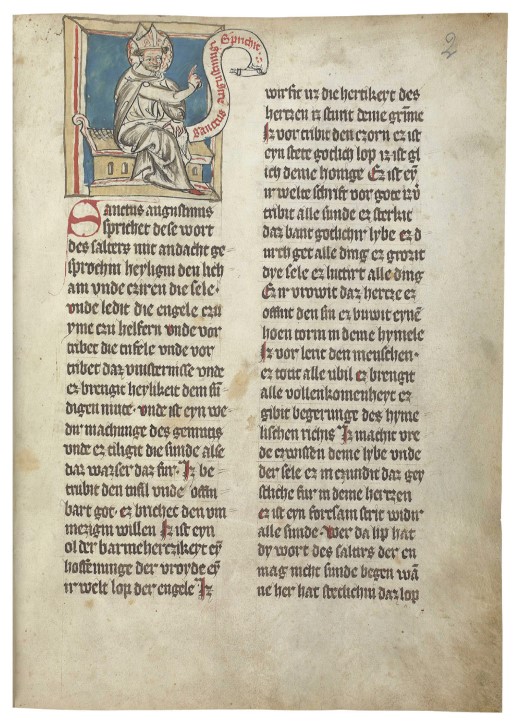 Sanctus augustinus spricht
2
Sanctus augustinus
sprichet dese wort
des salters mit andacht ge
sprochin heyligin den lich
am unde cziren die sele ·
unde ledit die engele czu
yme czu helfern unde vor
tribet die tufele unde vor
tribet daz vinsternisse unde
er brengit heylikeit dem sun
digen mute · unde ist eyn we
dir machunge des gemutis
unde er tiligit die sunde alse
daz wasser daz fur · Iz be
trubit den tufil unde offin
bart got · er brichet den um
mezigin willen Iz ist eyn
ol der barmehertzikeyt eyn
hoffenunge der vroyde eyn
ir welt lop der engele Iz
wirfit uz die hertikeyt des
hertzen iz stunt deme grimme
Iz vor tribit den czorn ez ist
eyn stete gotlich lop iz ist gl
ich deme honige Ez ist eyn
ir welte schrift vor gote iz v
tribit alle sunde ez sterkit
daz bant gotlichir lybe ez d
urch get alle ding ez grozit
dye sele ez lutirt alle ding
Ez ir vrowit daz hertze ez
offint den sin ez buwit eynen
hoen torm in deme hymele
Iz vor lerit den menschen ·
ez totit alle ubil ez brengit
alle vollenkomenheyt ez
gibit begerunge des hyme
lischen richis Iz machit vre
de czwissen deme lybe unde
der sele ez in czundit daz gey
stliche fur in deme hertzen
ez ist eyn fortsam strit widir
alle sunde · Wer da lip hat
dy wort des salters der en
mag nicht sunde begen wan
ne her hat stetlichin daz lop